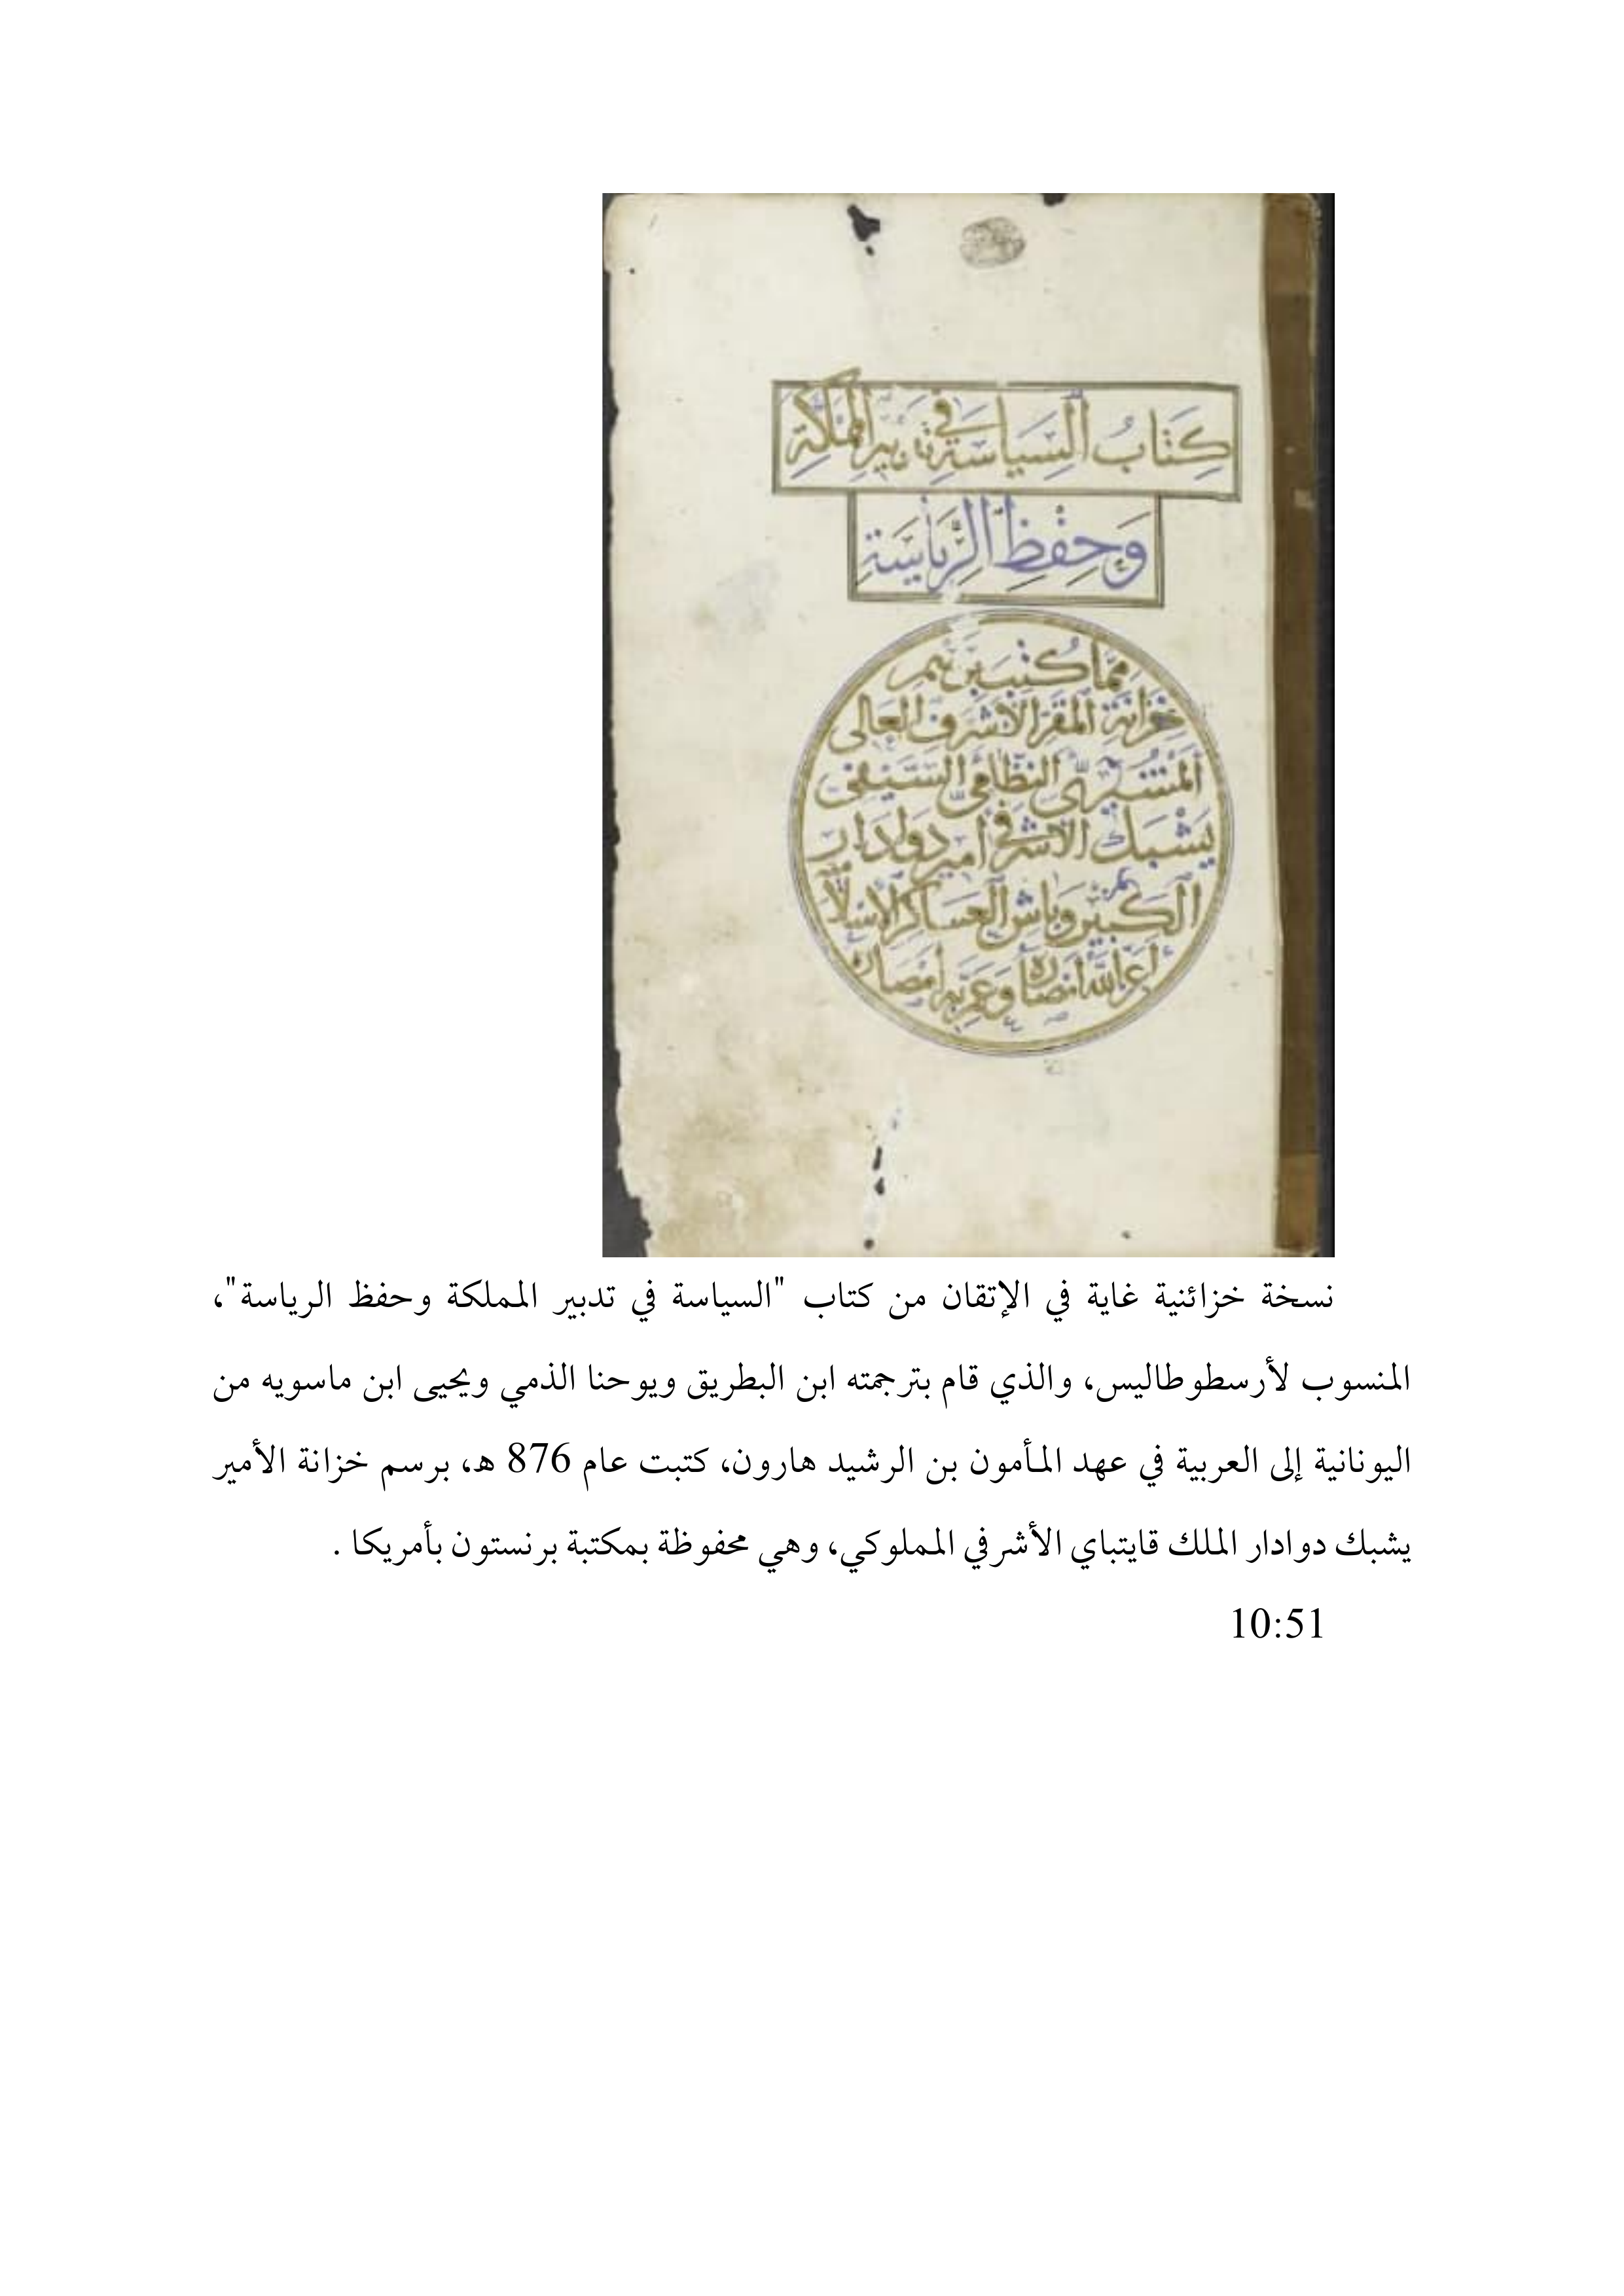 كِتَابُ السِّيَاسَةِ في تدبيرِ المملكَةِ
وَحِفْظِ الرِّيَاسَةِ
مِمَّا كُتِبَ بِرَسْمِ
خِزَانَةِ المَقَرِّ الأشرف العالى
يَشْبَك الأشرفى أمير دوادار
الكبير وباش العساكر الإسلا
أعز الله أنصاره
نسخة خزائنية غاية في الإتقان من كتاب "السياسة في تدبير المملكة وحفظ الرياسة"،
المنسوب لأرسطوطاليس، والذي قام بترجمته ابن البطريق ويوحنا الذمي ويحيى ابن ماسويه من
اليونانية إلى العربية في عهد المأمون بن الرشيد هارون، كتبت عام 876 هـ، برسم خزانة الأمير
يشبك دوادار الملك قايتباي الأشرفي المملوكي، وهي محفوظة بمكتبة برنستون بأمريكا .
10:51